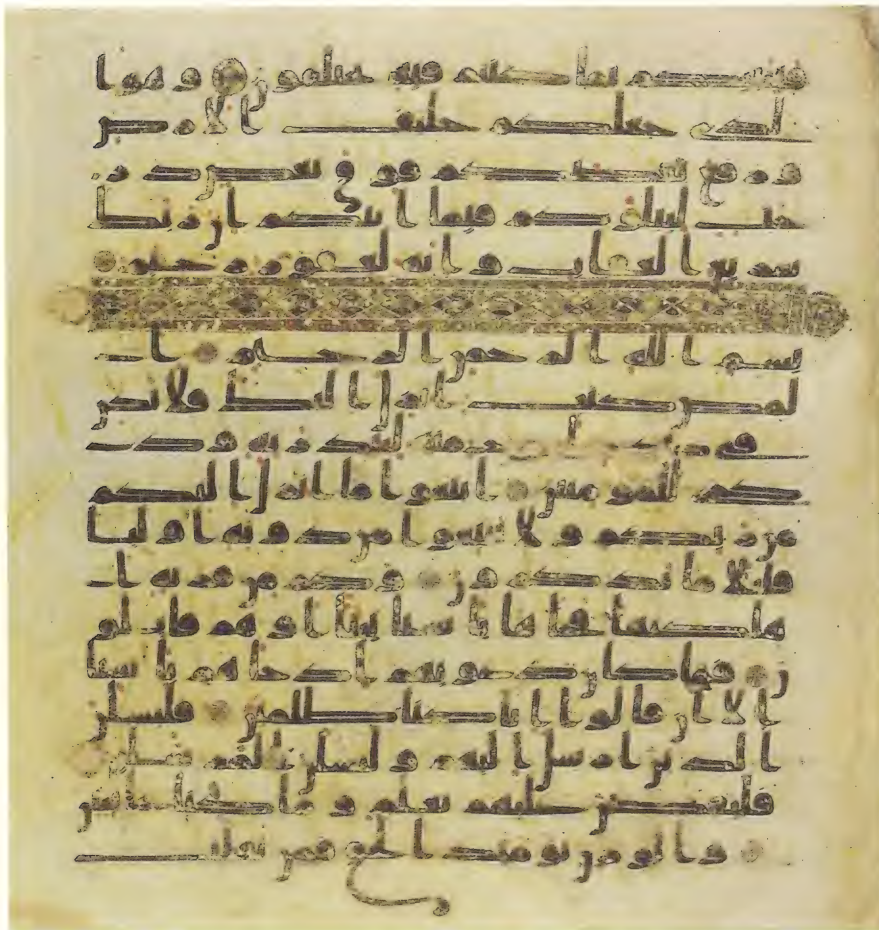 فينبئكم بما كنتم فيه تختلفون و هو ا
لذي جعلكم خلئف الارض
و رفع بعضكم فوق بعض در
جت ليبلوكم فيما اتيكم ان ربك
سريع العقاب و انه لغفور رحيم
بسم الله الرحمن الرحيم ا
لمص كتب انزل اليك فلا يكن
في صدرك حرج منه لتنذر به و ذ
كرى للمومنين اتبعوا ما انزل اليكم
من ربكم و لا تتبعوا من دونه اوليا
قليلا ما تذكرون و كم من قرية ا
هلكنها فجاها باسنا بيتا او هم قايلو
ن فما كان دعويهم اذ جاهم باسنا
الا ان قالوا انا كنا ظلمين فلنسلن
الذين ارسل اليهم و لنسلن المرسلين
فلنقصن عليهم بعلم و ما كنا غايبين
و الوزن يومئذ الحق فمن ثقلت